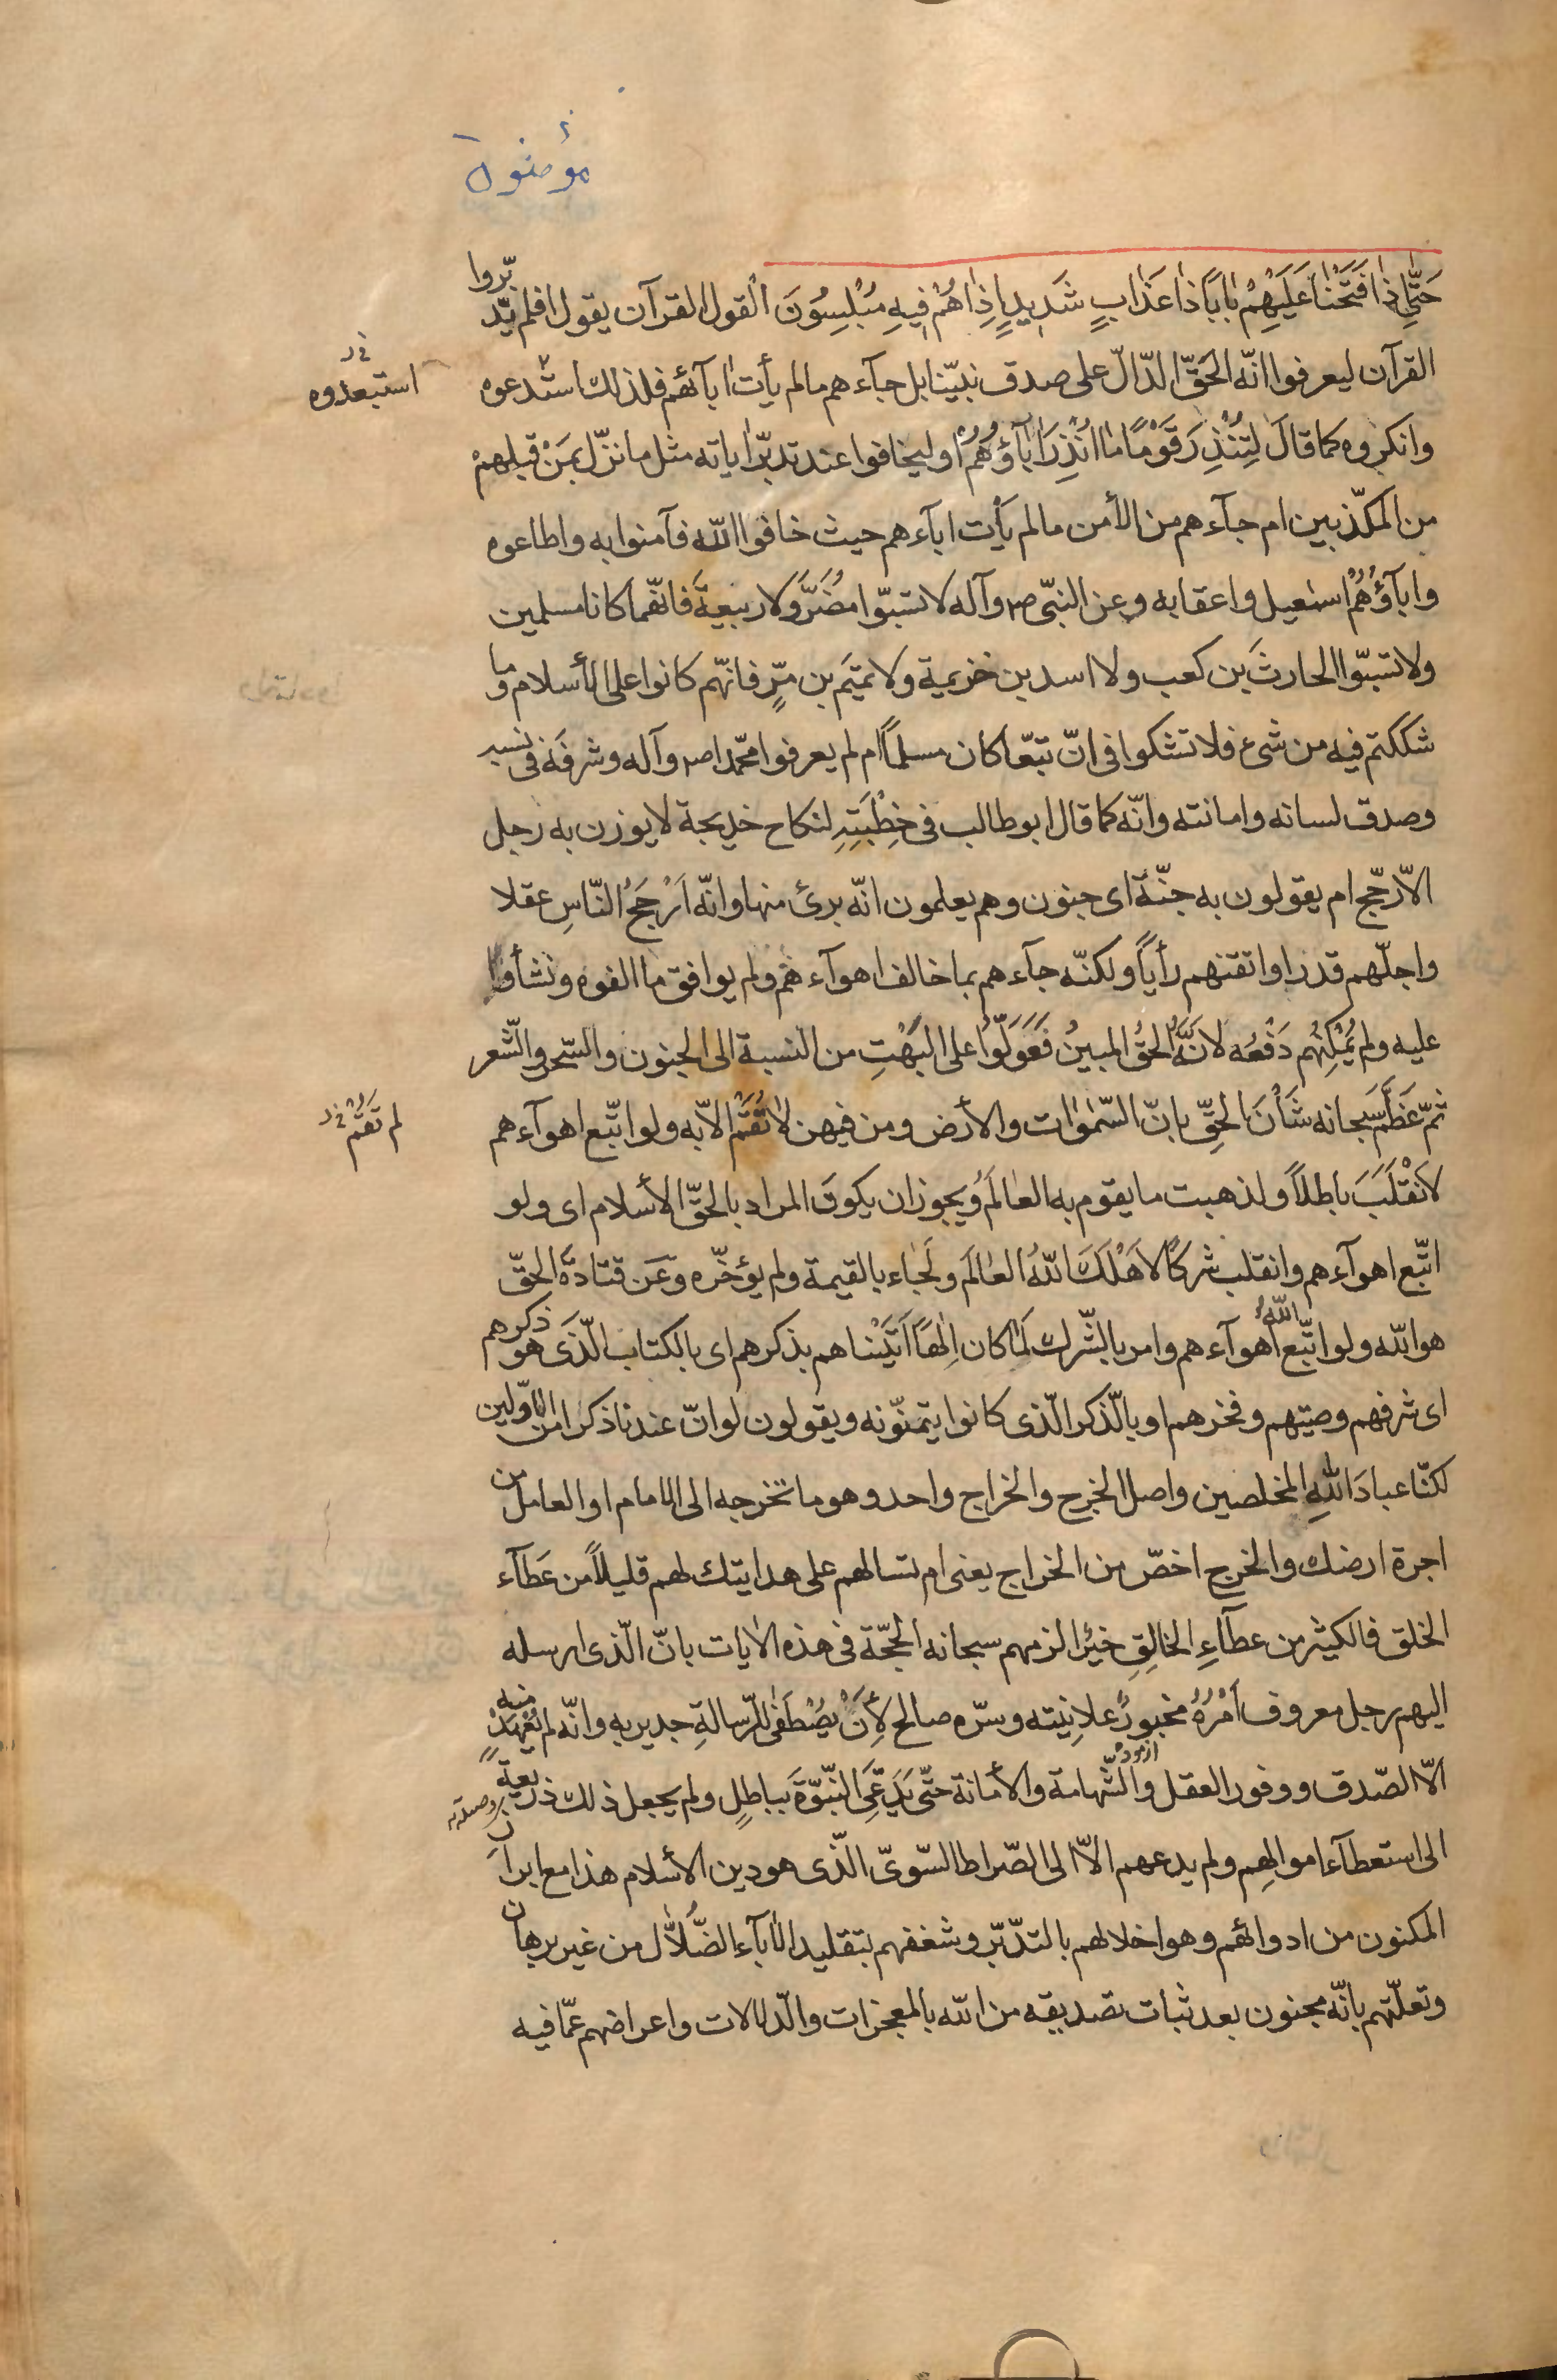 مؤمنون
حَتّٰی اِذا فَتَحْنا عَلَیْهِمْ بٰابًا ذٰا عَذٰابٍ شَدیدٍ اِذٰا هُمْ فیهِ مُبْلِسُونَ القول القرآن یقول افلم یتدبّروا
القرآن لیعرفوا انّه الحَقّ الدّالّ علی صدق نبیّنا بل جآءهم مالم یأت ابآئهم فلذلك استبدعوه
استبعدوه
وانکروه کما قالَ لِتُنْذِرَ قَوْمًا مٰا اُنْذِرَ اٰبآؤُهُمْ او لیخافوا عند تدبّر ایاته مثل ما نزّل بمَنْ قبلهمْ
من المکذّبین ام جآءهم من الأمن مالم یأت ابآءهم حیث خافوا اللّه فآمنوا به واطاعوه
وابآؤُهُمْ اسمٰعیل واعقابه وعن النبیّ ص وآله لا تسبّوا مُضَرَ وَلا ربیعةَ فانّهما کانا مسلمین
ولا تسبّوا الحارثَ بن کعب ولا اسد بن خزیمة ولا تمیَم بن مرٍّ فانّهم کانوا علی الأسلام وما
شککتم فیه من شیء فلا تشکوا فی انّ تبّعا کان مسلماً ام لم یعرفوا محمّدا ص وآله وشرفَه فی نسبه
وصدق لسانه وامانته وانّه کما قال ابوطالب فی خِطْبَتِهِ لنکاح خدیجة لا یوزن به رجل
الاّ رجّح ام یقولون به جنّة ای جنون وهم یعلمون انّه بریٔ منها وانّه اَرْجَحُ النّاسِ عقلا
واجلّهم قدرا واتقنهم رأیاً ولکنّه جآءهم بما خالف اهوآءهم ولم یوافق ما الفوه ونشأوا
علیه ولم یُمْکِنْهم دَفْعُه لانّهُ الحقُّ المبینُ فَعَوَلّوُا علی البَهْتِ من النسبة الی الجنون والسّحر والشّعر
ثمّ عَظَّمَ سبحانه شَأْنَ الحقِّ بانّ السّمٰوٰات والأرض ومن فیهن لٰا تَقُمْ الاّ به ولو اتّبع اهوآءهم
لم تَقُمْ
لاَنْقَلَبَ باطلاً ولذهبت ما یقوم به العالَمُ ویجوز ان یکونَ المراد بالحقّ الأسلام ای ولو
اتّبع اهوآءهم وانقلب شرکًا لاَهْلَكَ اللّهُ العٰالَمَ ولَجٰاء بالقیمة ولم یؤخّره وعَن قتادَةَ الحقّ
هو اللّه ولو اتّبع اللّهُ اهوآءهم وامر بالشّرك لَمٰا کان اِلٰهًا اَتَیْنٰاهم بذکرهم ای بالکتاب الّذی هو ذکرهم
ای شرفهم وصیتهم وفخرهم او بالّذکر الّذی کانوا یتمنّونه ویقولون لو انّ عندنا ذکرا من الاوّلین
لکنّا عبادَ اللّهِ المخلصین واصل الخرج والخراج واحد وهو ما تخرجه الی الامام او العامل من
اجرة ارضك والخرج اخصّ من الخراج یعنی ام تسالهم علی هدایتك لهم قلیلاً من عَطآء
الخلق فالکثیر من عطآءِ الخالِقِ خیرٌ الزمهم سبحانه الحجّة فی هذه الاٰیات بانّ الّذی ارسله
الیهم رجل معروف اَمْرُهُ مخبورٌ علانِیته وسرّه صالح لِأَنْ یُصْطَفٰی للرّسالةِ جدیر به وانّه لم یُعْهَدْ منه
ازموده
الّا الصّدق ووفور العقل والشّهامة والأمانة حتّی یَدَّعِیَ النّبوّةَ بباطلٍ ولم یجعل ذلك ذریعةً
الی استعطآء اموالِهِم ولم یدعهم الاّ الی الصّراط السّویّ الّذی هو دین الأسلام هذا مع ابراز
المکنون من ادوائهم وهو اخلالهم بالتدبّر وشغفهم بتقلید الاٰبآء الضُّلاّل من غیر برهان
وتعلّتهم بانّه مجنون بعد ثبات تصدیقه من اللّه بالمعجزات والدّلالات واعراضهم عمّا فیه